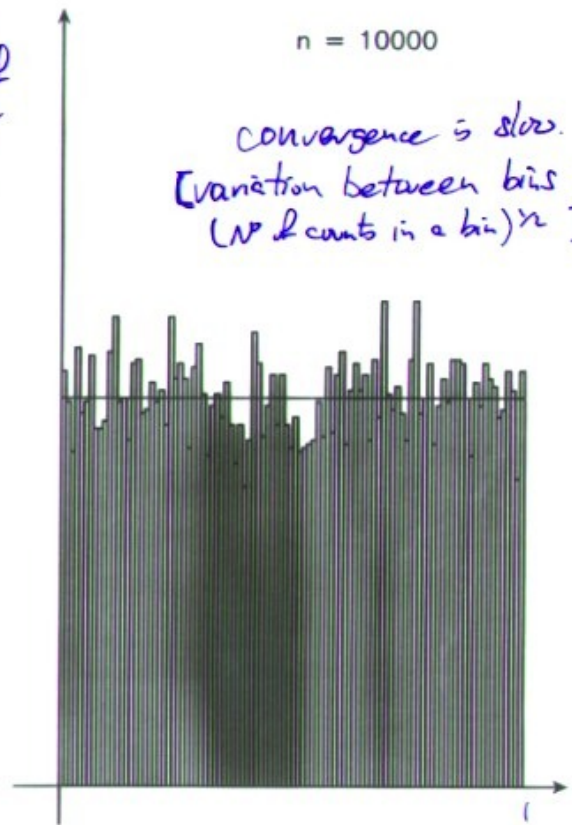 n = 10000
convergence is slow.
[variation between bins
(Nº of counts in a bin)^½ ]